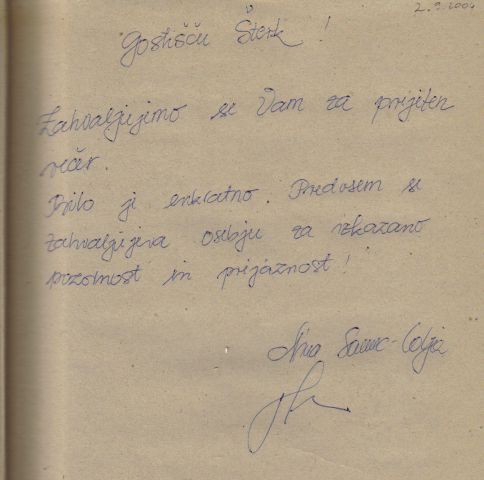 2.9.2004
Gostišču Šterk!
Zahvaljujemo se Vam za prijeten
večer.
Bilo je enkratno. Predvsem se
zahvaljujeva osebju za izkazano
pozornost in prijaznost!
Nina